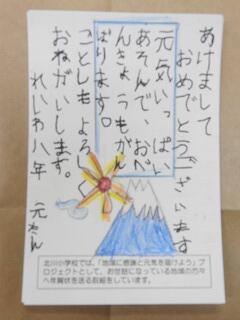 あけまして
おめでとうございます
元気いっぱい
あそんで、おべ
んきょうもがん
ばります。
ことしもよろしく
おねがいします。
れいわ八年 元たん
北川小学校では、「地域に感謝と元気を届けよう」プ
ロジェクトとして、お世話になっている地域の方々
へ年賀状を送る取組をしています。